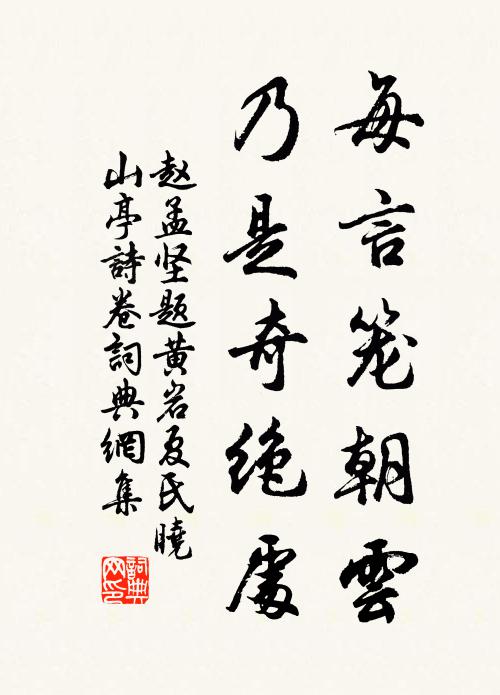 每言笼朝雲
乃是奇绝處
赵孟坚题黄岩夏氏曉
山亭詩卷詞典網集
詞典网印